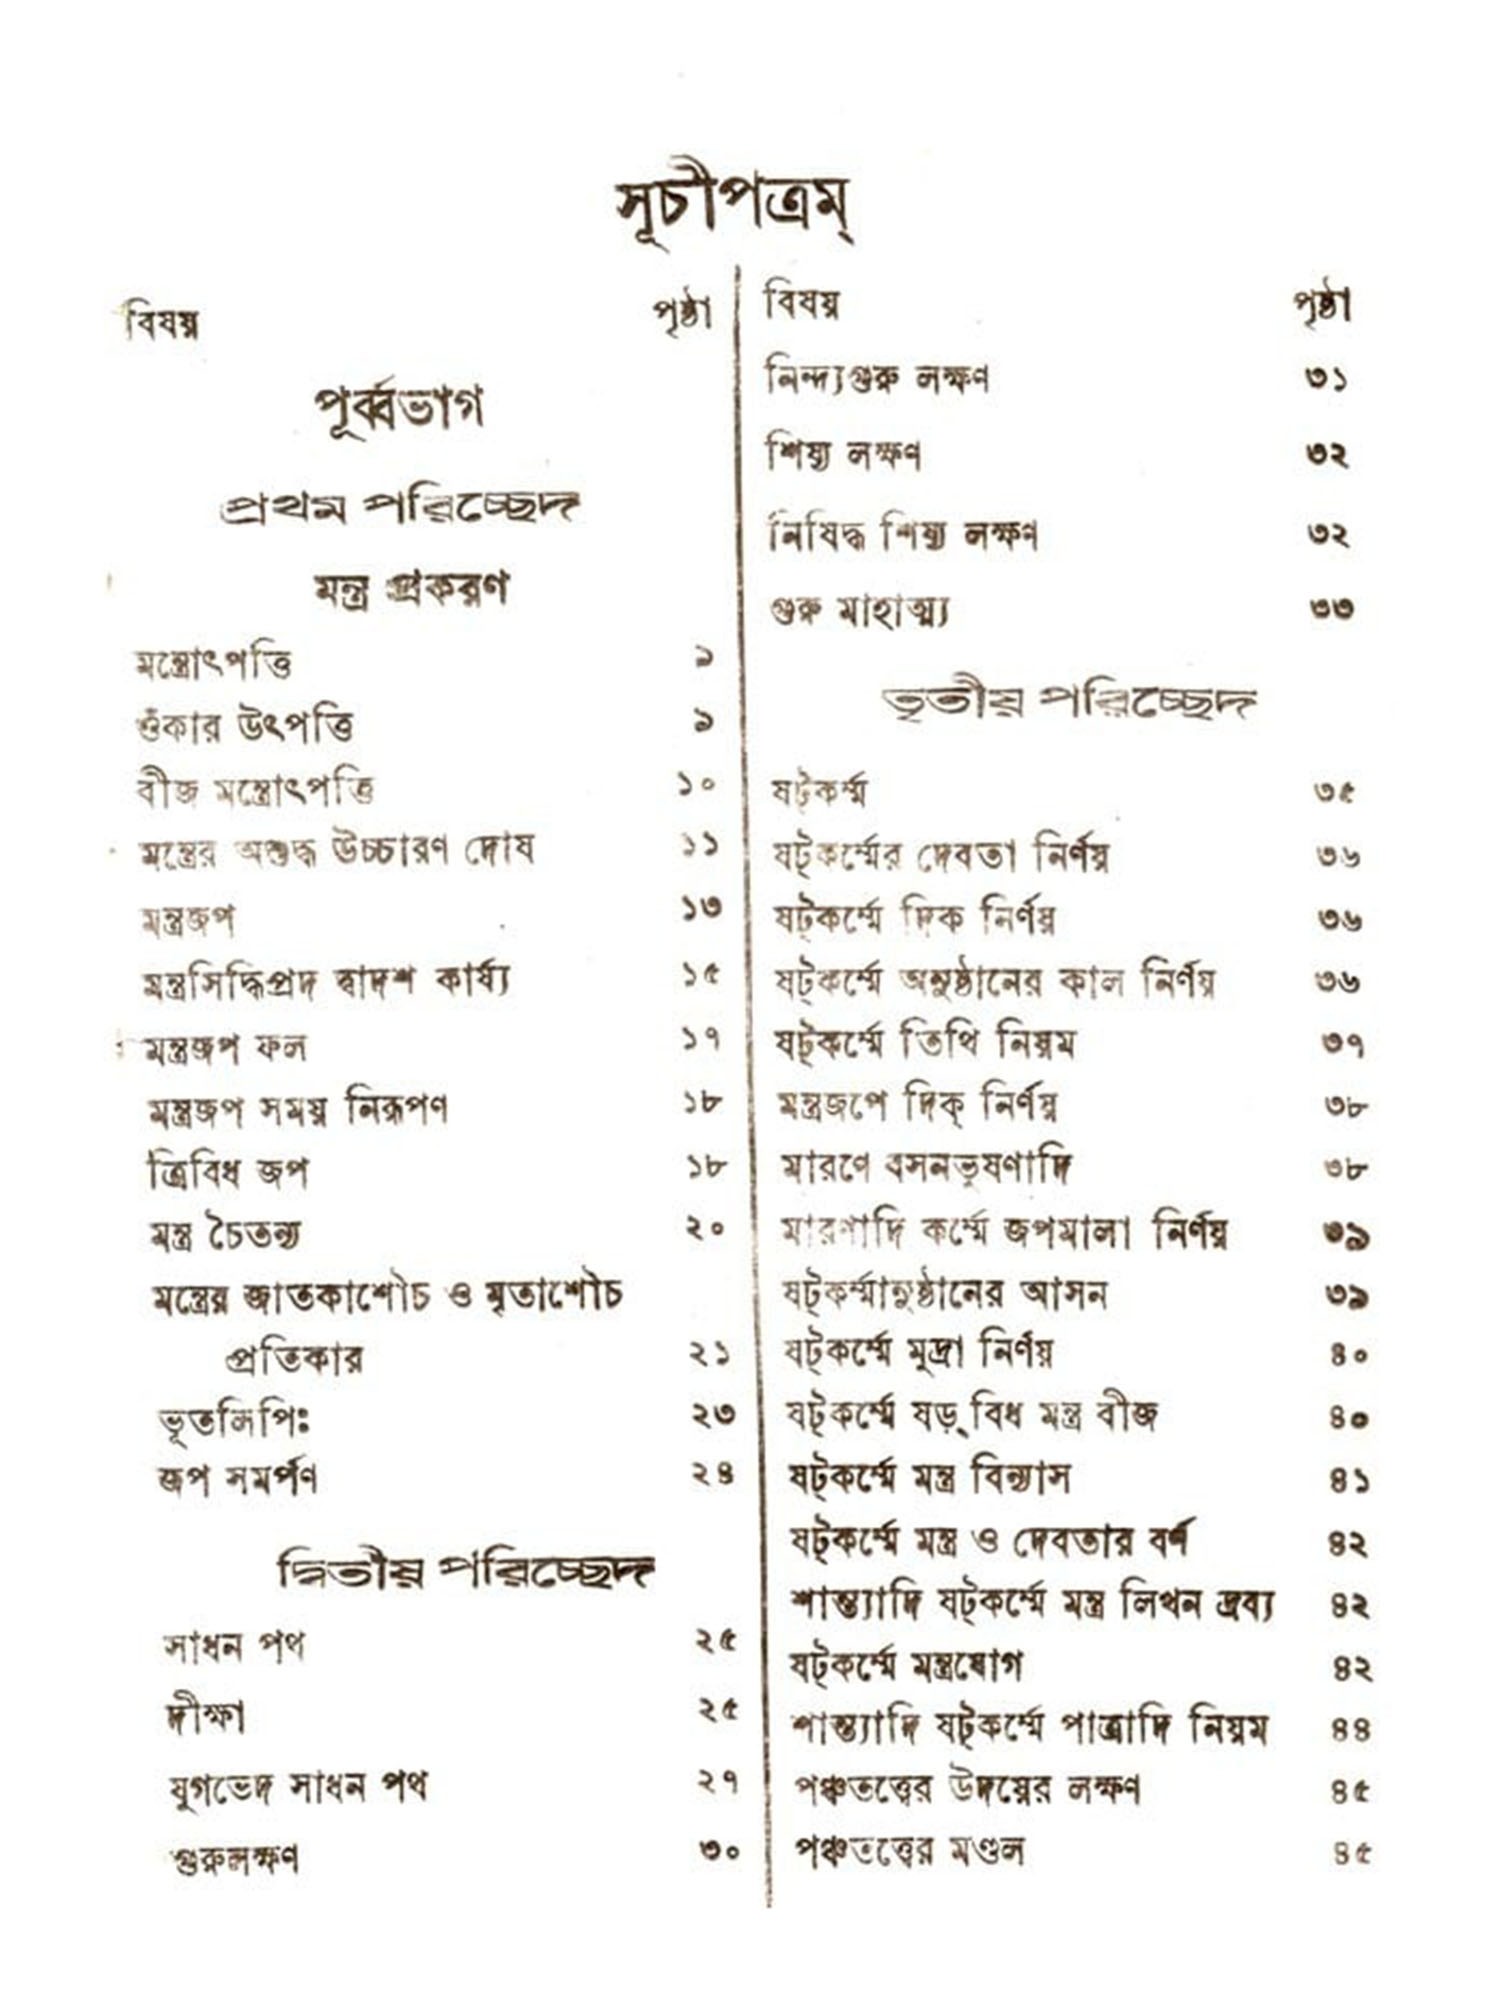 সূচীপত্রম্
বিষয় পৃষ্ঠা
পূর্ব্বভাগ
প্রথম পরিচ্ছেদ
মন্ত্র প্রকরণ
মন্ত্রোৎপত্তি ৯
ওঁকার উৎপত্তি ৯
বীজ মন্ত্রোৎপত্তি ১০
মন্ত্রের অশুদ্ধ উচ্চারণ দোষ ১১
মন্ত্রজপ ১৩
মন্ত্রসিদ্ধিপ্রদ দ্বাদশ কার্য্য ১৫
মন্ত্রজপ ফল ১৭
মন্ত্রজপ সময় নিরূপণ ১৮
ত্রিবিধ জপ ১৮
মন্ত্র চৈতন্য ২০
মন্ত্রের জাতকাশৌচ ও মৃতাশৌচ
প্রতিকার ২১
ভূতলিপিঃ ২৩
জপ সমর্পণ ২৪
দ্বিতীয় পরিচ্ছেদ
সাধন পথ ২৫
দীক্ষা ২৫
যুগভেদ সাধন পথ ২৭
গুরুলক্ষণ ৩০
বিষয় পৃষ্ঠা
নিন্দ্যগুরু লক্ষণ ৩১
শিষ্য লক্ষণ ৩২
নিষিদ্ধ শিষ্য লক্ষণ ৩২
গুরু মাহাত্ম্য ৩৩
তৃতীয় পরিচ্ছেদ
ষট্‌কর্ম্ম ৩৫
ষট্‌কর্ম্মের দেবতা নির্ণয় ৩৬
ষট্‌কর্ম্মে দিক নির্ণয় ৩৬
ষট্‌কর্ম্মে অনুষ্ঠানের কাল নির্ণয় ৩৬
ষট্‌কর্ম্মে তিথি নিয়ম ৩৭
মন্ত্রজপে দিক্ নির্ণয় ৩৮
মারণে বসনভূষণাদি ৩৮
মারণাদি কর্ম্মে জপমালা নির্ণয় ৩৯
ষট্‌কর্ম্মানুষ্ঠানের আসন ৩৯
ষট্‌কর্ম্মে মুদ্রা নির্ণয় ৪০
ষট্‌কর্ম্মে ষড়্‌বিধ মন্ত্র বীজ ৪০
ষট্‌কর্ম্মে মন্ত্র বিন্যাস ৪১
ষট্‌কর্ম্মে মন্ত্র ও দেবতার বর্ণ ৪২
শান্ত্যাদি ষট্‌কর্ম্মে মন্ত্র লিখন দ্রব্য ৪২
ষট্‌কর্ম্মে মন্ত্রযোগ ৪২
শান্ত্যাদি ষট্‌কর্ম্মে পাত্রাদি নিয়ম ৪৪
পঞ্চতত্ত্বের উদয়ের লক্ষণ ৪৫
পঞ্চতত্ত্বের মণ্ডল ৪৫